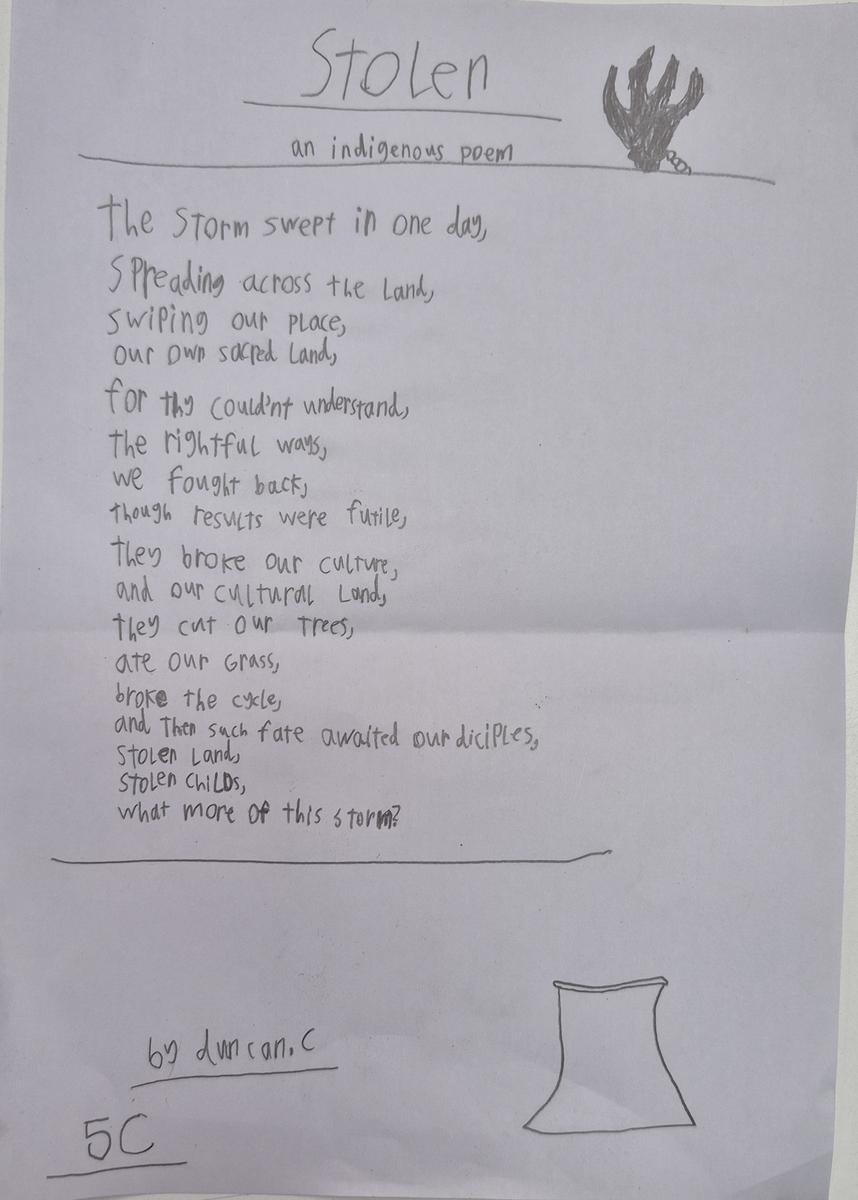 Stolen
an indigenous poem
the storm swept in one day,
Spreading across the Land,
swiping our place,
our own sacred Land,
for thy could'nt understand,
the rightful ways,
we fought back,
though results were futile,
they broke our culture,
and our cultural Land,
they cut our trees,
ate our grass,
broke the cycle,
and then such fate awaited our diciples,
stolen Land,
stolen childs,
what more of this storm?
by duncan.C
5C